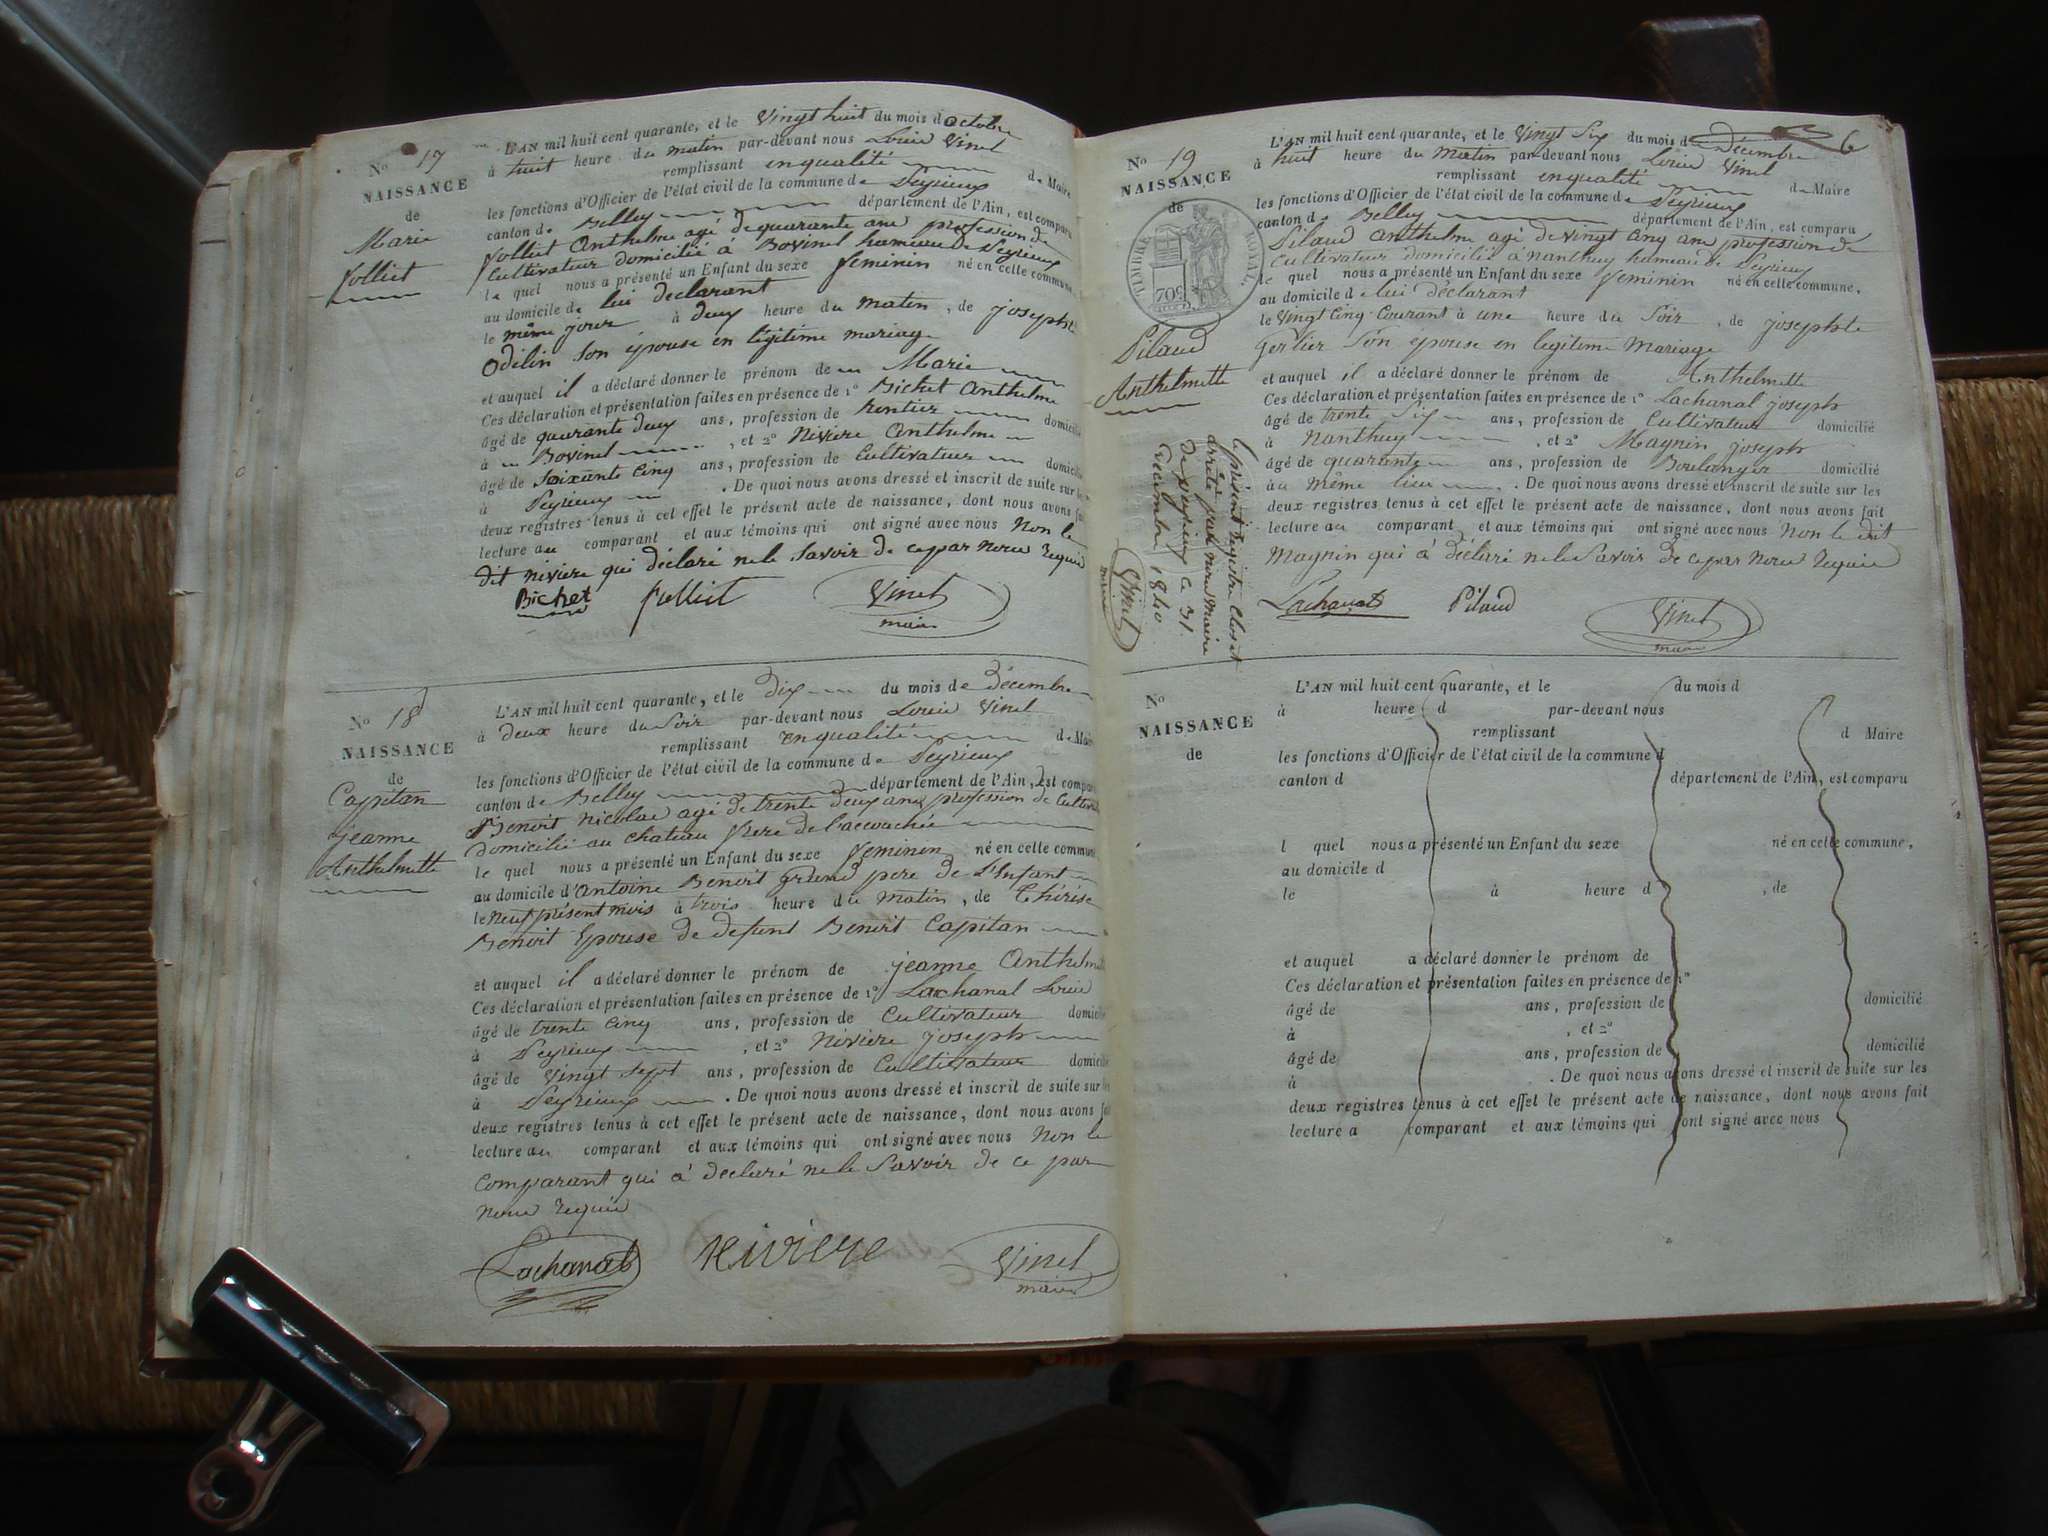 N° 17
NAISSANCE
de
Marie
folliet
L'AN mil huit cent quarante, et le Vingt huit du mois d octobre
à huit heure du matin par-devant nous Louis Vinet
remplissant en qualité de Maire
les fonctions d'Officier de l'état civil de la commune de Peyrieux
canton de Belley département de l'Ain, est comparu
folliet Anthelme agé de quarante ans profession de
Cultivateur domicilié à Bovinel hameau de Peyrieux
le quel nous a présenté un Enfant du sexe feminin né en cette commune,
au domicile de lui declarant
le même jour à deux heure du matin, de josephte
Odelin Son épouse en légitime mariage
et auquel il a déclaré donner le prénom de Marie
Ces déclaration et présentation faites en présence de 1° Bichet Anthelme
âgé de quarante deux ans, profession de Rentier domicilié
à Bovinel, et 2° Riviere Anthelme
âgé de Soixante cinq ans, profession de Cultivateur domicilié
à Peyrieux. De quoi nous avons dressé et inscrit de suite sur les
deux registres tenus à cet effet le présent acte de naissance, dont nous avons fait
lecture au comparant et aux témoins qui ont signé avec nous Non le
dit riviere qui déclaré ne le Savoir de ce par nous Requis
Bichet folliet Vinet
maire
N° 18
NAISSANCE
de
Capitan
jeanne
Anthelmette
L'AN mil huit cent quarante, et le dix du mois de décembre
à deux heure du Soir par-devant nous Louis Vinet
remplissant en qualité de Maire
les fonctions d'Officier de l'état civil de la commune de Peyrieux
canton de Belley département de l'Ain, est comparu
Benoit Nicolas agé de trente deux ans profession de Cultivateur
domicilié au chateau frere de l'accouchée
le quel nous a présenté un Enfant du sexe feminin né en cette commune
au domicile d'Antoine Benoit grand pere de L'Enfant
le Neuf présent mois à trois heure du matin, de Thérèse
Benoit Epouse de defunt Benoit Capitan
et auquel il a déclaré donner le prénom de jeanne Anthelmette
Ces déclaration et présentation faites en présence de 1° Lachanal Louis
âgé de trente cinq ans, profession de Cultivateur domicilié
à Peyrieux, et 2° Riviere joseph
âgé de Vingt sept ans, profession de Cultivateur domicilié
à Peyrieux. De quoi nous avons dressé et inscrit de suite sur les
deux registres tenus à cet effet le présent acte de naissance, dont nous avons fait
lecture au comparant et aux témoins qui ont signé avec nous Non le
Comparant qui à declaré ne le Savoir de ce par
nous Requis
Lachanal Riviere Vinet
maire
6
N° 19
NAISSANCE
de
TIMBRE ROYAL
70c
Pilaud
Anthelmette
L'AN mil huit cent quarante, et le Vingt Six du mois de Décembre
à huit heure du Matin par-devant nous Louis Vinet
remplissant en qualité de Maire
les fonctions d'Officier de l'état civil de la commune de Peyrieux
canton de Belley département de l'Ain, est comparu
Pilaud Anthelme agé de vingt cinq ans profession de
Cultivateur domicilié à nanthuy hameau de Peyrieux
le quel nous a présenté un Enfant du sexe feminin né en cette commune,
au domicile de lui déclarant
le Vingt Cinq Courant à une heure du Soir, de josephte
Gerlier Son épouse en legitime Mariage
et auquel il a déclaré donner le prénom de Anthelmette
Ces déclaration et présentation faites en présence de 1° Lachanal joseph
âgé de trente Six ans, profession de Cultivateur domicilié
à Nanthuy, et 2° Magnin joseph
âgé de quarante ans, profession de Boulanger domicilié
au même lieu. De quoi nous avons dressé et inscrit de suite sur les
deux registres tenus à cet effet le présent acte de naissance, dont nous avons fait
lecture au comparant et aux témoins qui ont signé avec nous Non le dit
Magnin qui à déclaré ne le Savoir de ce par nous Requis
Lachanal Pilaud Vinet
maire
Le présent registre Clos et
arrêté par nous Maire
de peyrieux ce 31
Décembre 1840
Vinet
maire
N°
NAISSANCE
de
L'AN mil huit cent quarante, et le du mois d
à heure d par-devant nous
remplissant d Maire
les fonctions d'Officier de l'état civil de la commune d
canton d département de l'Ain, est comparu
l quel nous a présenté un Enfant du sexe né en cette commune,
au domicile d
le à heure d , de
et auquel a déclaré donner le prénom de
Ces déclaration et présentation faites en présence de 1°
âgé de ans, profession de domicilié
à , et 2°
âgé de ans, profession de domicilié
à . De quoi nous avons dressé et inscrit de suite sur les
deux registres tenus à cet effet le présent acte de naissance, dont nous avons fait
lecture a comparant et aux témoins qui ont signé avec nous